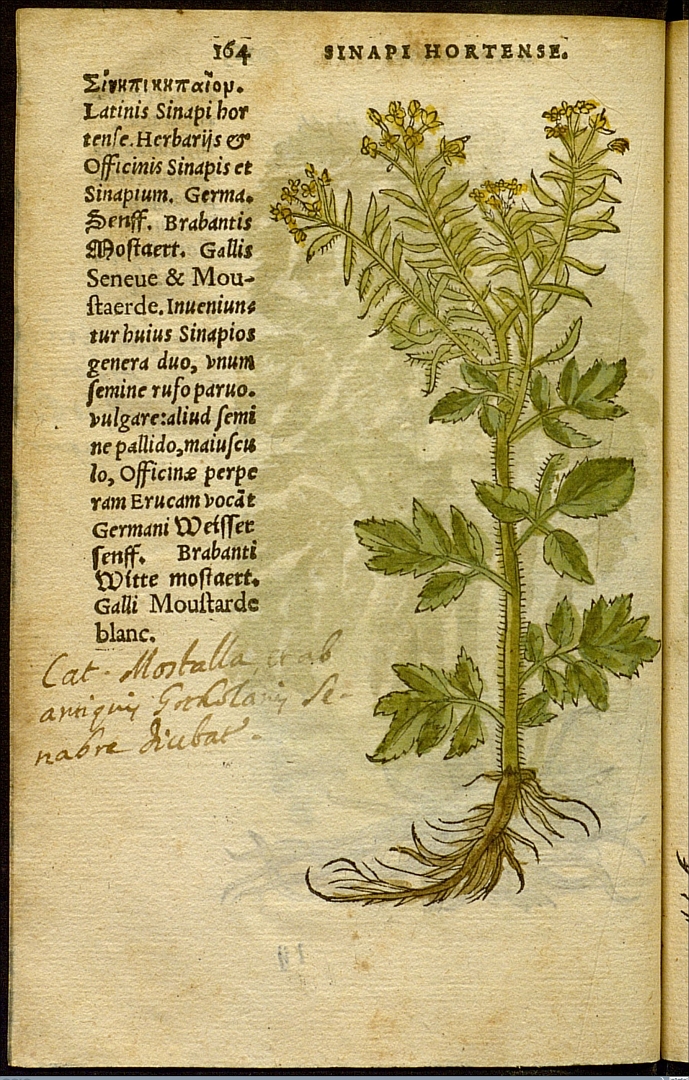 164
SINAPI HORTENSE.
Σίνηπι κηπαῖον.
Latinis Sinapi hor
tenſe. Herbarijs &
Officinis Sinapis et
Sinapium. Germa.
Senff. Brabantis
Moſtaert. Gallis
Seneue & Mou-
ſtaerde. Inueniun-
tur huius Sinapios
genera duo, vnum
ſemine rufo paruo.
vulgare: aliud ſemi
ne pallido, maiuſcu
lo, Officinæ perpe
ram Erucam vocāt
Germani Weiſſer
ſenff. Brabanti
Witte moſtaert.
Galli Mouſtarde
blanc.
Cat. Mostalla, et ab
antiquis Se-
nabre